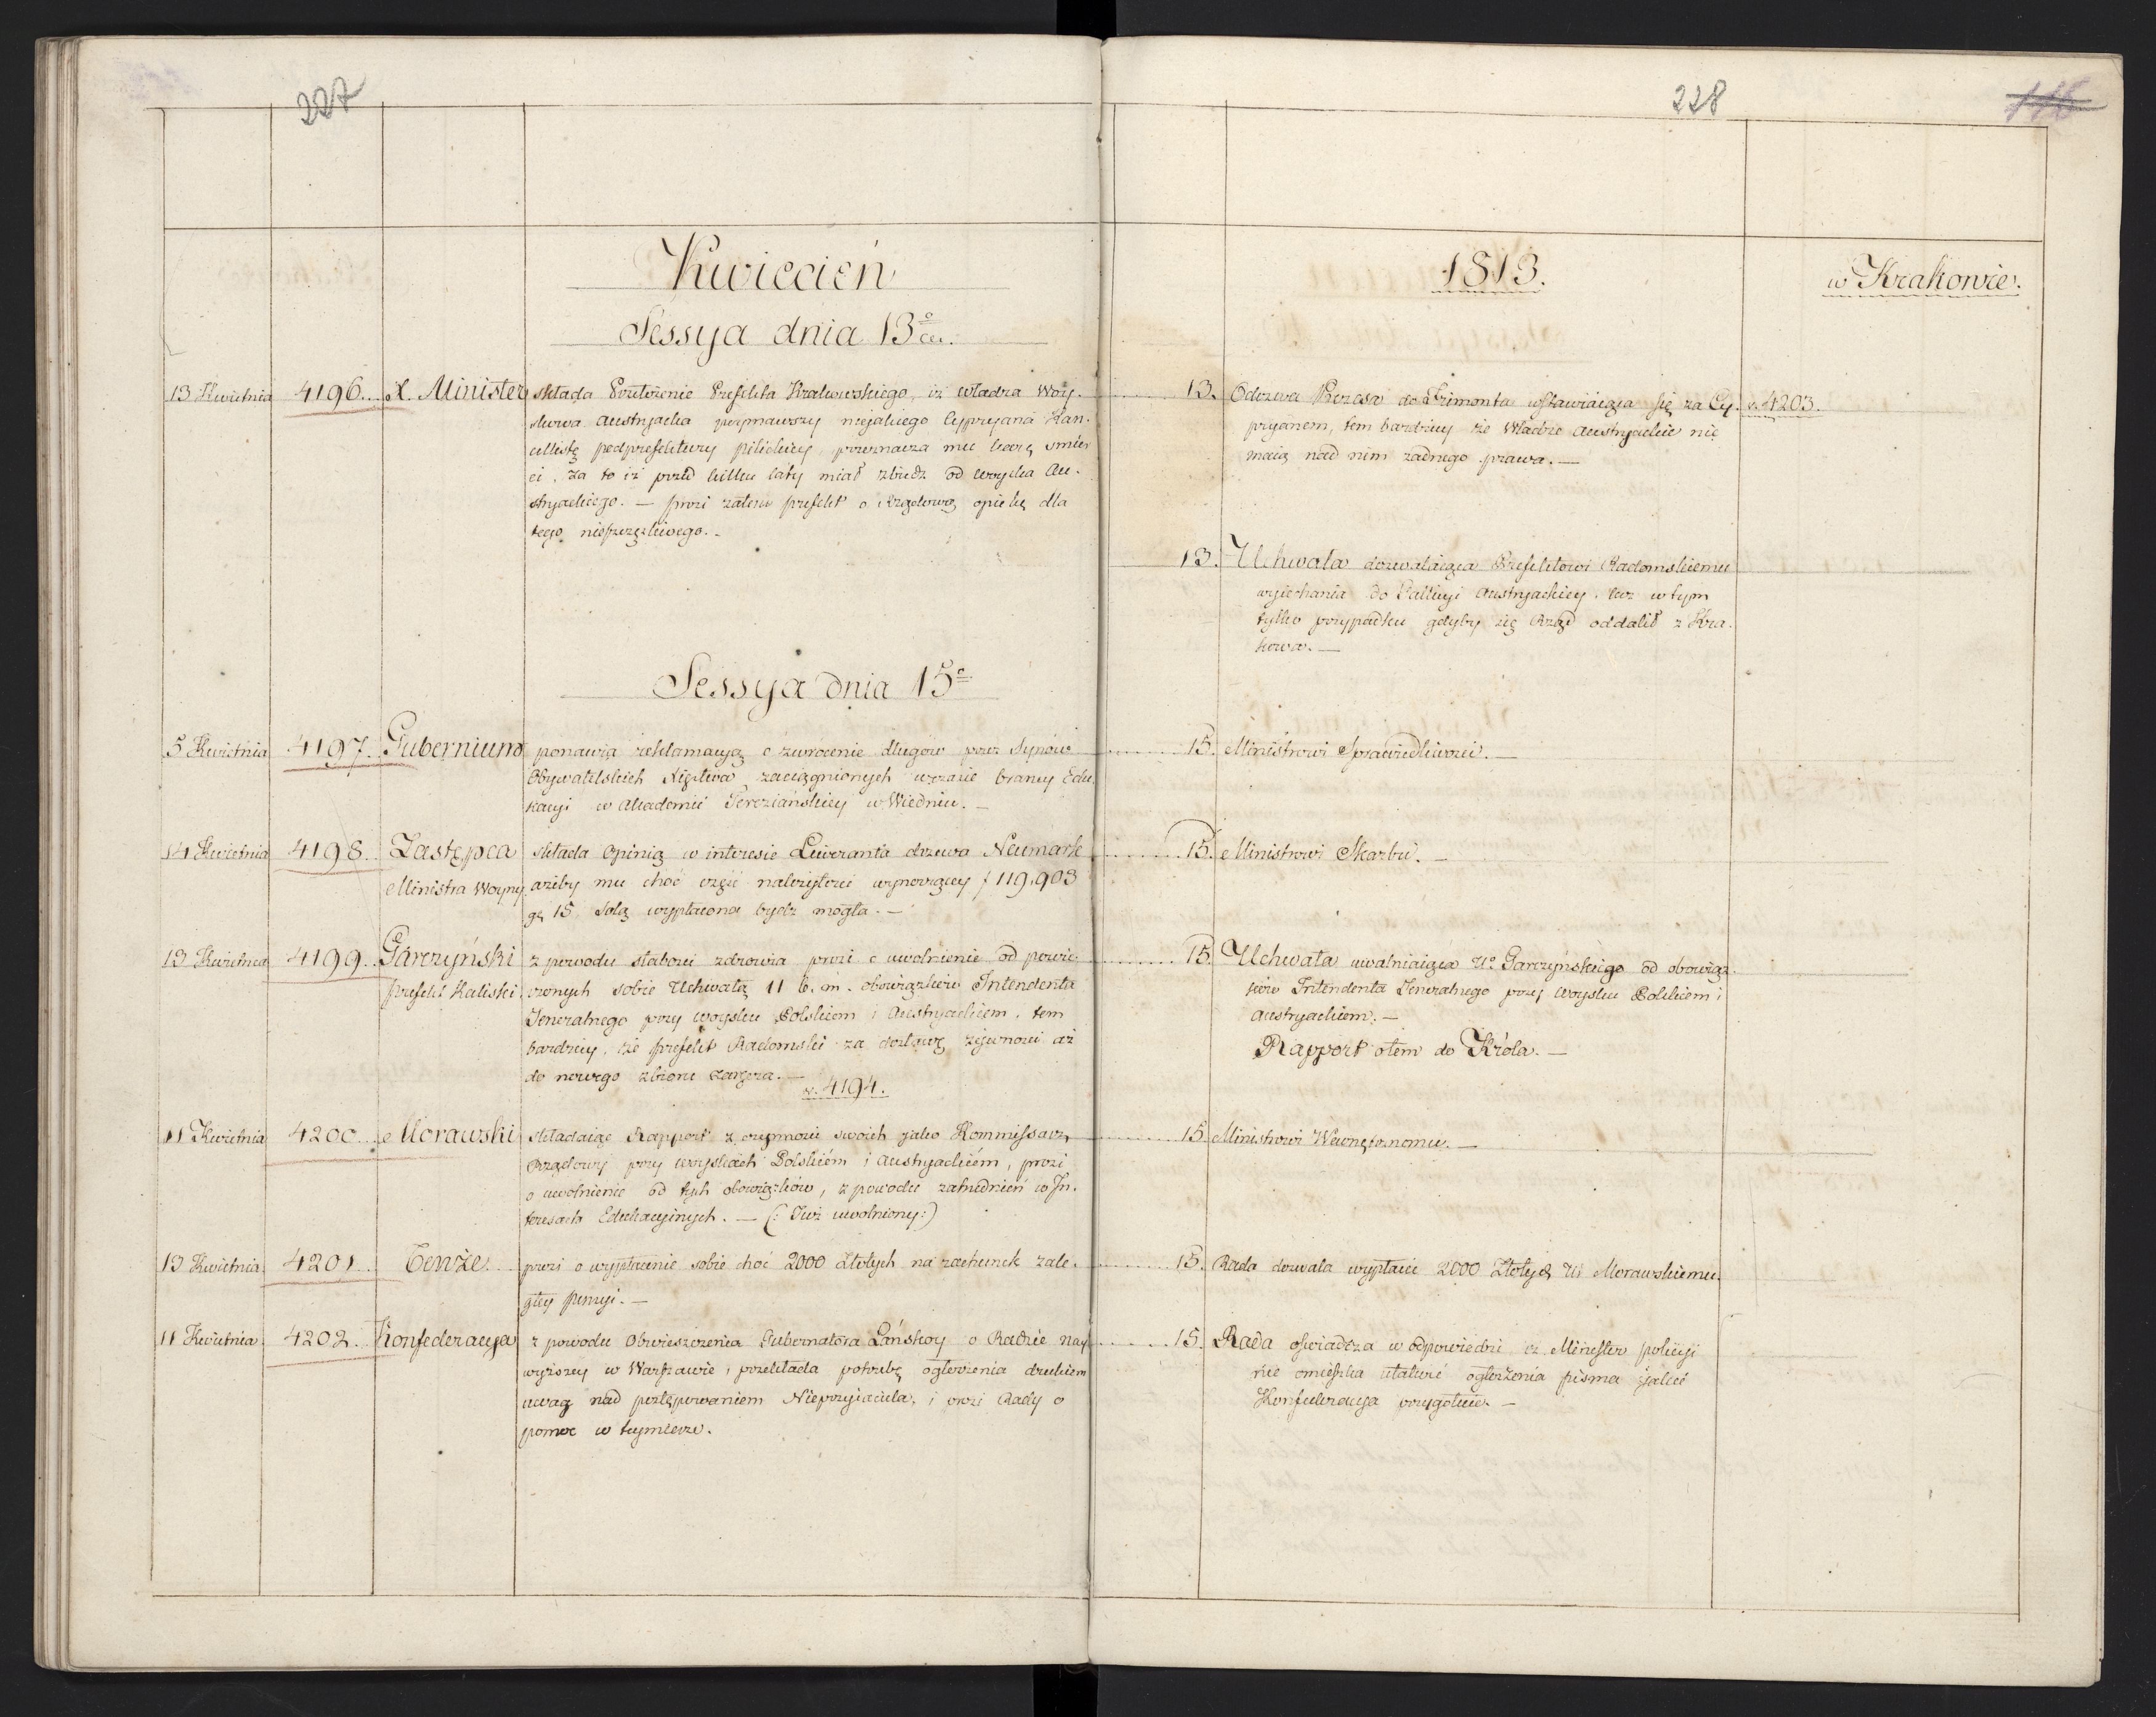 227
Kwiecień
Sessya dnia 13º
13 Kwietnia 4196. X. Minister składa Doniesienie Prefekta Krakowskiego, iż władza Woy-
skowa Austryacka poymawszy niejakiego Cypryana Kan-
cellistę podprefektury pilickiey, przeznacza mu karę śmier
ci, za to iż przed kilku laty miał zbiedz od woyska Au-
stryackiego. — prosi zatem prefekt o rządową opiekę dla
tego nieszczęśliwego. -
Sessya dnia 15º
5 Kwietnia 4197. Gubernium ponawia reklamacyą o zwrócenie długów przez Synów
Obywatelskich Xięstwa zaciągnionych w czasie braney Edu-
kacyi w Akademii Tereziańskiey w Wiedniu. -
14 Kwietnia 4198. Zastępca składa Opinią w interesie Liweranta drzewa Neumark
Ministra Woyny ażeby mu choć część należytości wynoszącey f 119,903
gr 15, solą wypłacona bydz mogła. —
13 Kwietnia 4199. Garczyński z powodu słabości zdrowia prosi o uwolnienie od powie-
prefekt Kaliski rzonych sobie Uchwałą 11 b. m. obowiązków Intendenta
Jeneralnego przy woysku Polskiem i Austryackiem, tem
bardziey, że prefekt Radomski za dostawę żywności aż
do nowego zbioru zaręcza. —
v. 4194.
11 Kwietnia 4200. Morawski składaiąc Rapport z czynności swoich jako Kommissarz
Rządowy przy woyskach Polskiém i Austryackiém, prosi
o uwolnienie od tych obowiązków, z powodu zatrudnień w In-
teresach Edukacyinych. — (: Już uwolniony:)
13 Kwietnia 4201. Tenże. prosi o wypłacenie sobie choć 2000 Złotych na rachunek zale-
głey pensyi. —
11 Kwietnia 4202. Konfederacya z powodu Obwieszczenia Gubernatora Łańskoy o Radzie nay-
wyższey w Warszawie, przekłada potrzebę ogłoszenia drukiem
uwag nad postępowaniem Nieprzyiaciela, i prosi Rady o
pomoc w tymierze.
228
116
1813. w Krakowie.
13. Odezwa Prezesa do Frimonta wstawiaiąca się za Cy- v. 4203.
pryanem, tem bardziey że Władze Austryackie nie
maią nad nim żadnego prawa. —
13. Uchwała dozwalaiąca Prefektowi Radomskiemu
wyiechania do Gallicyi Austryackiey, lecz w tym
tylko przypadku gdyby się Rząd oddalił z Kra-
kowa. —
15. Ministrowi Sprawiedliwości. —
15. Ministrowi Skarbu. —
15. Uchwała uwalniaiąca Uº Garczyńskiego od obowiąz-
ków Intendenta Jeneralnego przy Woysku Polskiem i
Austryackiem. —
Rapport o tem do Króla. —
15. Ministrowi Wewnętrznemu. —
15. Rada dozwala wypłacić 2000 Złotych Uº Morawskiemu.
15. Rada oświadcza w odpowiedzi iż Minister policyi
nie omieszka ułatwić ogłoszenia pisma jakie
Konfederacya przygotuie. —